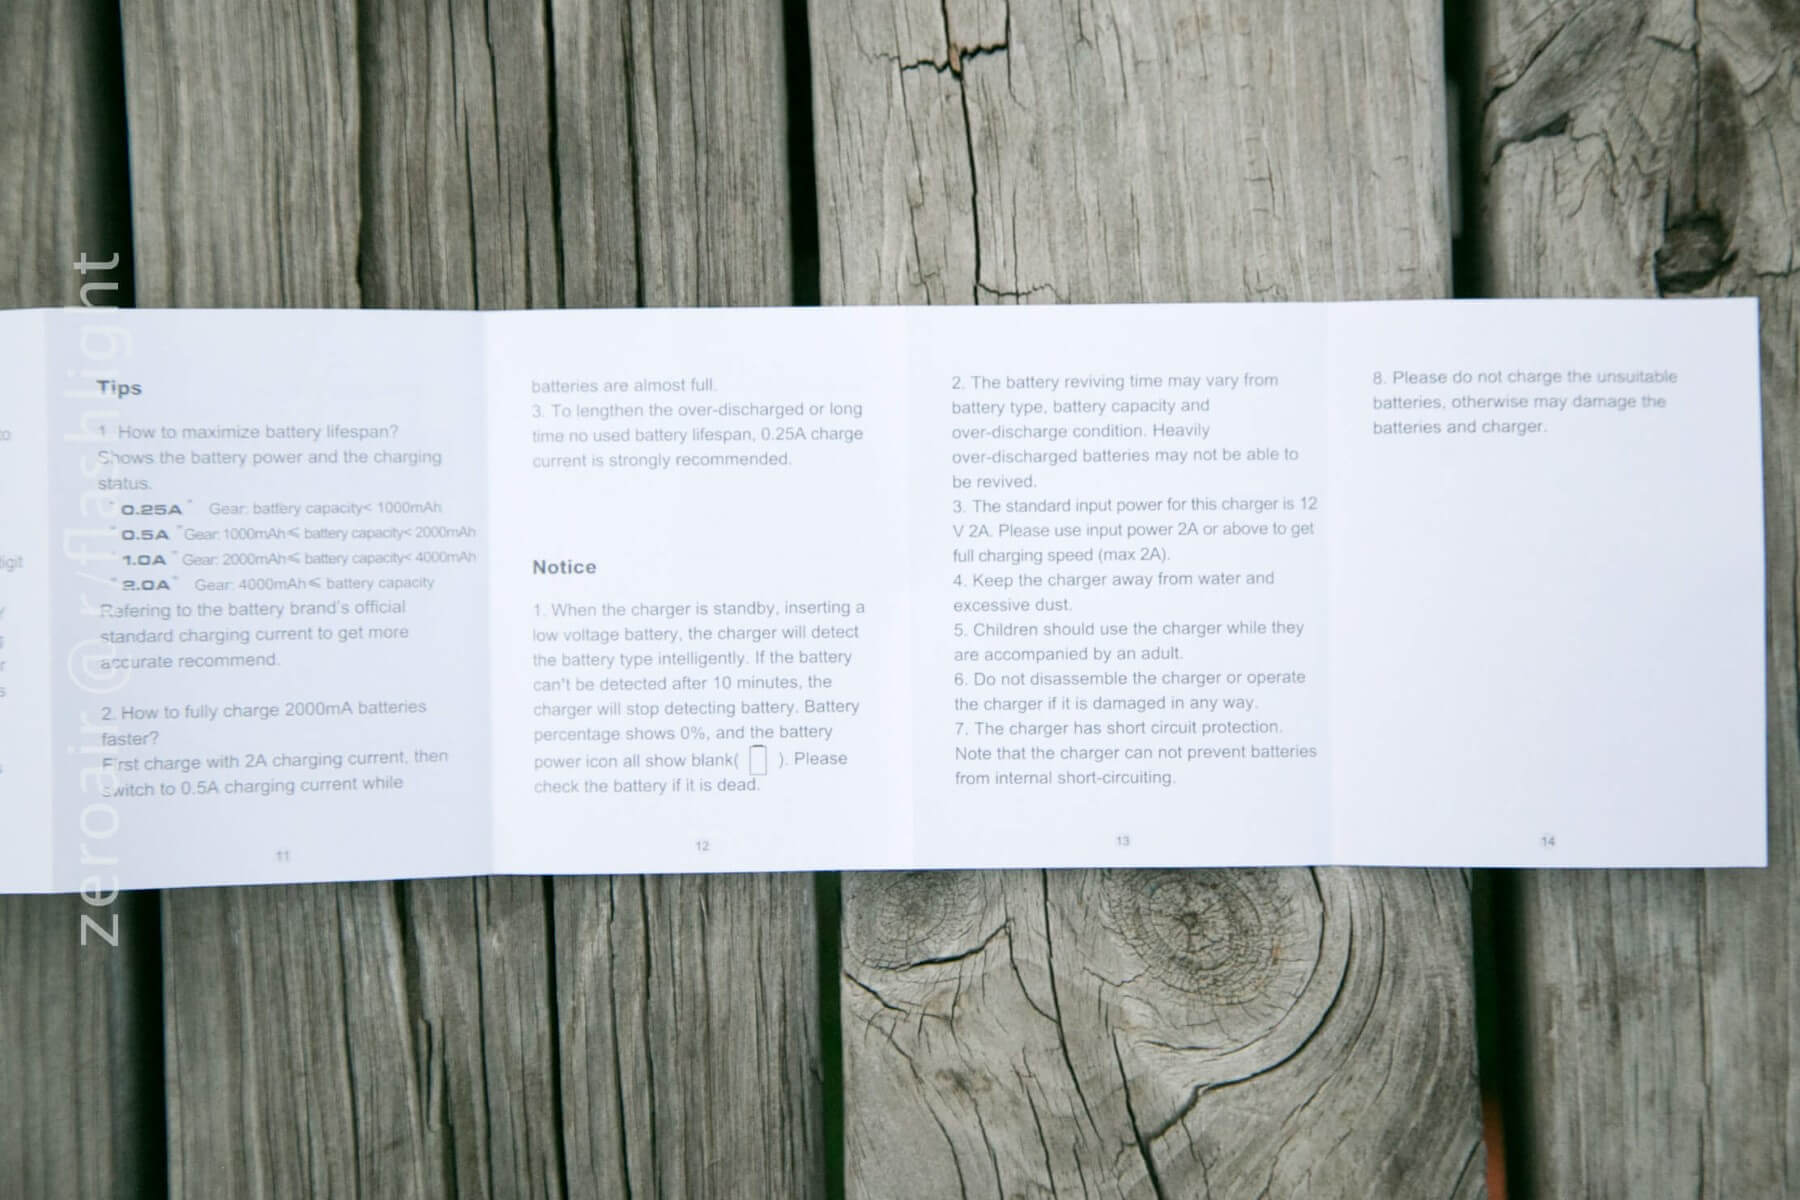 Tips
1. How to maximize battery lifespan?
Shows the battery power and the charging
status.
" 0.25A " Gear: battery capacity< 1000mAh
" 0.5A " Gear: 1000mAh≤ battery capacity< 2000mAh
" 1.0A " Gear: 2000mAh≤ battery capacity< 4000mAh
" 2.0A " Gear: 4000mAh≤ battery capacity
Refering to the battery brand's official
standard charging current to get more
accurate recommend.
2. How to fully charge 2000mA batteries
faster?
First charge with 2A charging current, then
switch to 0.5A charging current while
11
batteries are almost full.
3. To lengthen the over-discharged or long
time no used battery lifespan, 0.25A charge
current is strongly recommended.
Notice
1. When the charger is standby, inserting a
low voltage battery, the charger will detect
the battery type intelligently. If the battery
can't be detected after 10 minutes, the
charger will stop detecting battery. Battery
percentage shows 0%, and the battery
power icon all show blank( ). Please
check the battery if it is dead.
12
2. The battery reviving time may vary from
battery type, battery capacity and
over-discharge condition. Heavily
over-discharged batteries may not be able to
be revived.
3. The standard input power for this charger is 12
V 2A. Please use input power 2A or above to get
full charging speed (max 2A).
4. Keep the charger away from water and
excessive dust.
5. Children should use the charger while they
are accompanied by an adult.
6. Do not disassemble the charger or operate
the charger if it is damaged in any way.
7. The charger has short circuit protection.
Note that the charger can not prevent batteries
from internal short-circuiting.
13
8. Please do not charge the unsuitable
batteries, otherwise may damage the
batteries and charger.
14
zeroair@/r/flashlight